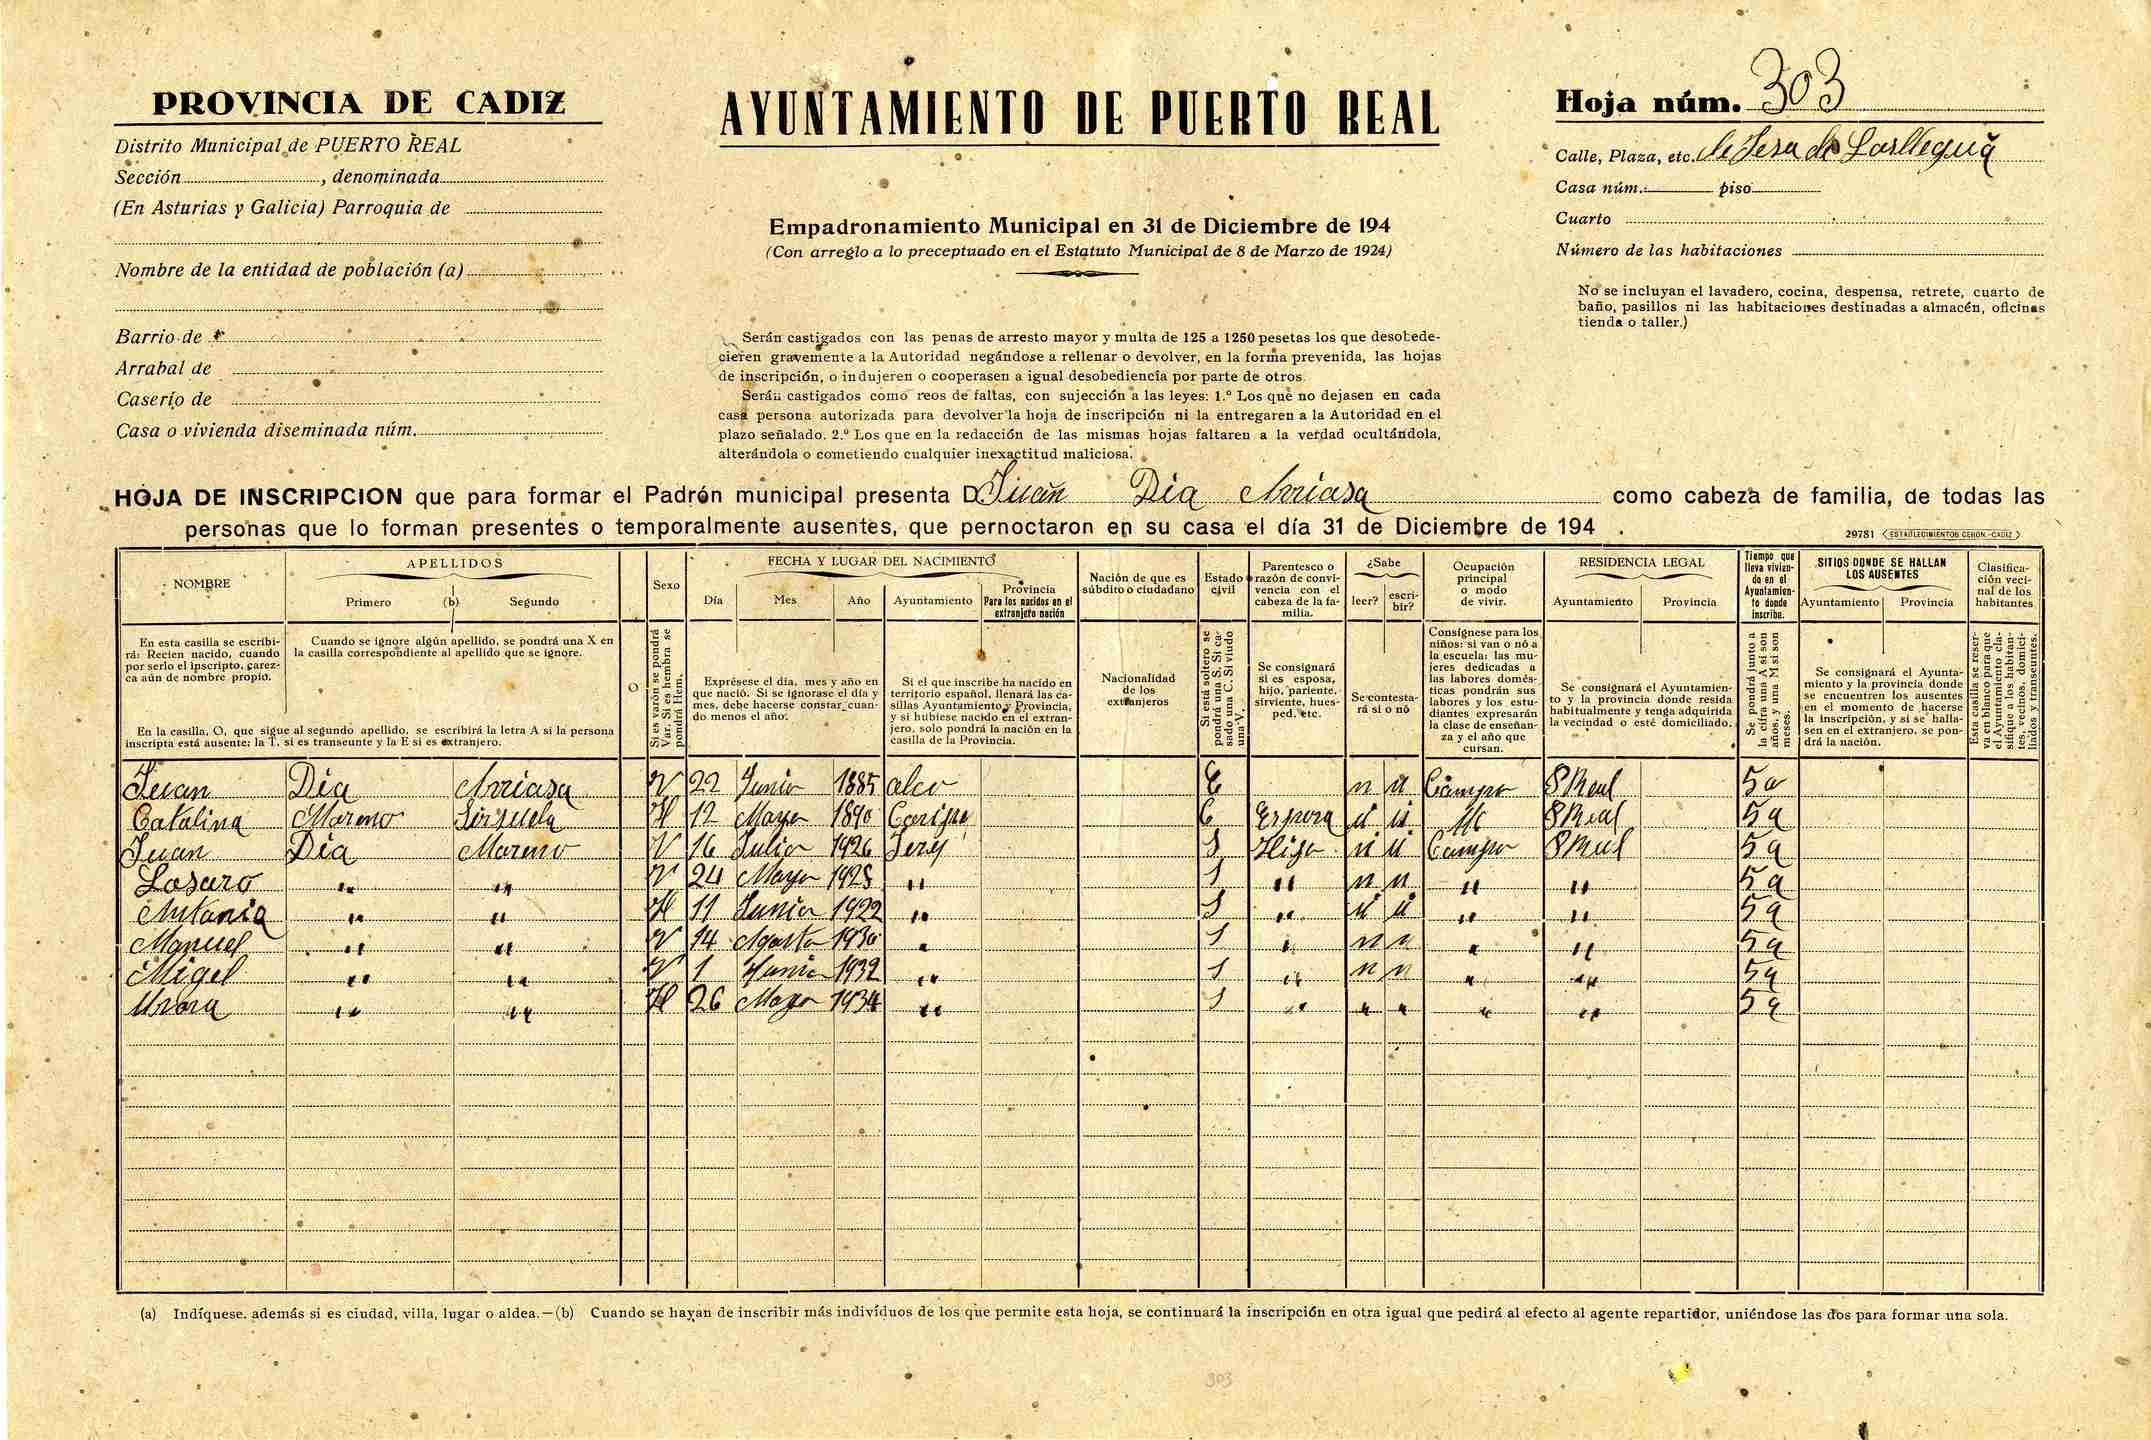 PROVINCIA DE CADIZ
Distrito Municipal de PUERTO REAL
Sección , denominada
(En Asturias y Galicia) Parroquia de
Nombre de la entidad de población (a)
Barrio de
Arrabal de
Caserío de
Casa o vivienda diseminada núm.
AYUNTAMIENTO DE PUERTO REAL
Empadronamiento Municipal en 31 de Diciembre de 194
(Con arreglo a lo preceptuado en el Estatuto Municipal de 8 de Marzo de 1924)
Serán castigados con las penas de arresto mayor y multa de 125 a 1250 pesetas los que desobede-
cieren gravemente a la Autoridad negándose a rellenar o devolver, en la forma prevenida, las hojas
de inscripción, o indujeren o cooperasen a igual desobediencia por parte de otros.
Serán castigados como reos de faltas, con sujección a las leyes: 1.º Los que no dejasen en cada
casa persona autorizada para devolver la hoja de inscripción ni la entregaren a la Autoridad en el
plazo señalado. 2.º Los que en la redacción de las mismas hojas faltaren a la verdad ocultándola,
alterándola o cometiendo cualquier inexactitud maliciosa.
Hoja núm. 303
Calle, Plaza, etc.
Casa núm. piso
Cuarto
Número de las habitaciones
No se incluyan el lavadero, cocina, despensa, retrete, cuarto de
baño, pasillos ni las habitaciones destinadas a almacén, oficinas
tienda o taller.)
HOJA DE INSCRIPCION que para formar el Padrón municipal presenta D. Juan Dia Arriasa como cabeza de familia, de todas las
personas que lo forman presentes o temporalmente ausentes, que pernoctaron en su casa el día 31 de Diciembre de 194 .
29781 ESTABLECIMIENTOS CERON.-CADIZ
NOMBRE
APELLIDOS
Primero (b) Segundo
O
Sexo
FECHA Y LUGAR DEL NACIMIENTO
Día Mes Año Ayuntamiento
Provincia
Para los nacidos en el
extranjero nación
Nación de que es
súbdito o ciudadano
Estado
civil
Parentesco o
razón de convi-
vencia con el
cabeza de la fa-
milia.
¿Sabe
leer? escri-
bir?
Ocupación
principal
o modo
de vivir.
RESIDENCIA LEGAL
Ayuntamiento Provincia
Tiempo que
lleva vivien-
do en el
Ayuntamien-
to donde
inscribe.
SITIOS DONDE SE HALLAN
LOS AUSENTES
Ayuntamiento Provincia
Clasifica-
ción veci-
nal de los
habitantes
En esta casilla se escribi-
rá: Recien nacido, cuando
por serlo el inscripto, carez-
ca aún de nombre propio.
Cuando se ignore algún apellido, se pondrá una X en
la casilla correspondiente al apellido que se ignore.
En la casilla, O, que sigue al segundo apellido, se escribirá la letra A si la persona
inscripta está ausente; la T, si es transeunte y la E si es extranjero.
Si es varón se pondrá
Var. Si es hembra se
pondrá Hem.
Exprésese el día, mes y año en
que nació. Si se ignorase el día y
mes, debe hacerse constar cuan-
do menos el año.
Si el que inscribe ha nacido en
territorio español, llenará las ca-
sillas Ayuntamiento y Provincia,
y si hubiese nacido en el extran-
jero, solo pondrá la nación en la
casilla de la Provincia.
Nacionalidad
de los
extranjeros
Si está soltero se
pondrá una S. Si ca-
sado una C. Si viudo
una V.
Se consignará
si es esposa,
hijo, pariente,
sirviente, hues-
ped, etc.
Se contesta-
rá si o nó
Consígnese para los
niños: si van o nó a
la escuela; las mu-
jeres dedicadas a
las labores domés-
ticas pondrán sus
labores y los estu-
diantes expresarán
la clase de enseñan-
za y el año que
cursan.
Se consignará el Ayuntamien-
to y la provincia donde resida
habitualmente y tenga adquirida
la vecindad o esté domiciliado.
Se pondrá junto a
la cifra una A si son
años, y una M si son
meses.
Se consignará el Ayunta-
miento y la provincia donde
se encuentren los ausentes
en el momento de hacerse
la inscripción, y si se halla-
sen en el extranjero, se pon-
drá la nación.
Esta casilla se reser-
va en blanco para que
el Ayuntamiento cla-
sifique a los habitan-
tes, vecinos, domici-
liados y transeuntes.
Juan Dia Arriasa V 22 Junio 1885 alco C n n Campo P Real 5 a
Catalina Moreno H 12 Mayo 1890 C Espora P Real 5 a
Juan Dia Moreno V 16 Julio 1926 Jerez S Hijo Campo P Real 5 a
Losaro " " V 24 Mayo 1928 " S " n n " " 5 a
Antonia " " H 11 Junio 1922 " S " " " 5 a
Manuel " " V 14 Agosto 1930 " S " n n " " 5 a
Migel " " V 1 Junio 1932 " S " n n " " 5 a
" " H 26 Mayo 1934 " S " " " " " 5 a
(a) Indíquese, además si es ciudad, villa, lugar o aldea.—(b) Cuando se hayan de inscribir más individuos de los que permite esta hoja, se continuará la inscripción en otra igual que pedirá al efecto al agente repartidor, uniéndose las dos para formar una sola.
303